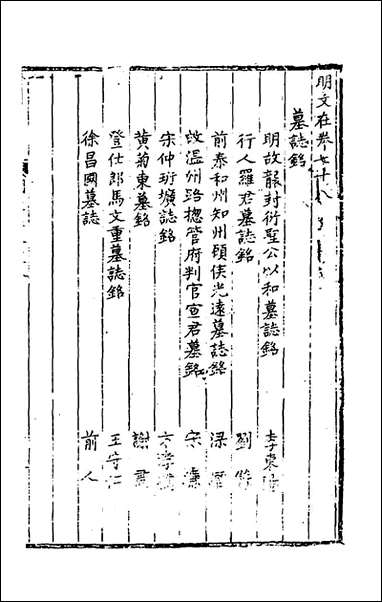 明文在卷七十八
墓誌銘
明故襲封衍聖公以和墓誌銘 李東陽
行人羅君墓誌銘 劉
前泰和州知州顧侯光遠墓誌銘 梁
故溫州路摠管府判官宣君墓銘 宋濂
宋仲珩壙誌銘 方孝
黄菊東墓銘 謝肅
登仕郎馬文重墓誌銘 王守仁
徐昌國墓誌 前人